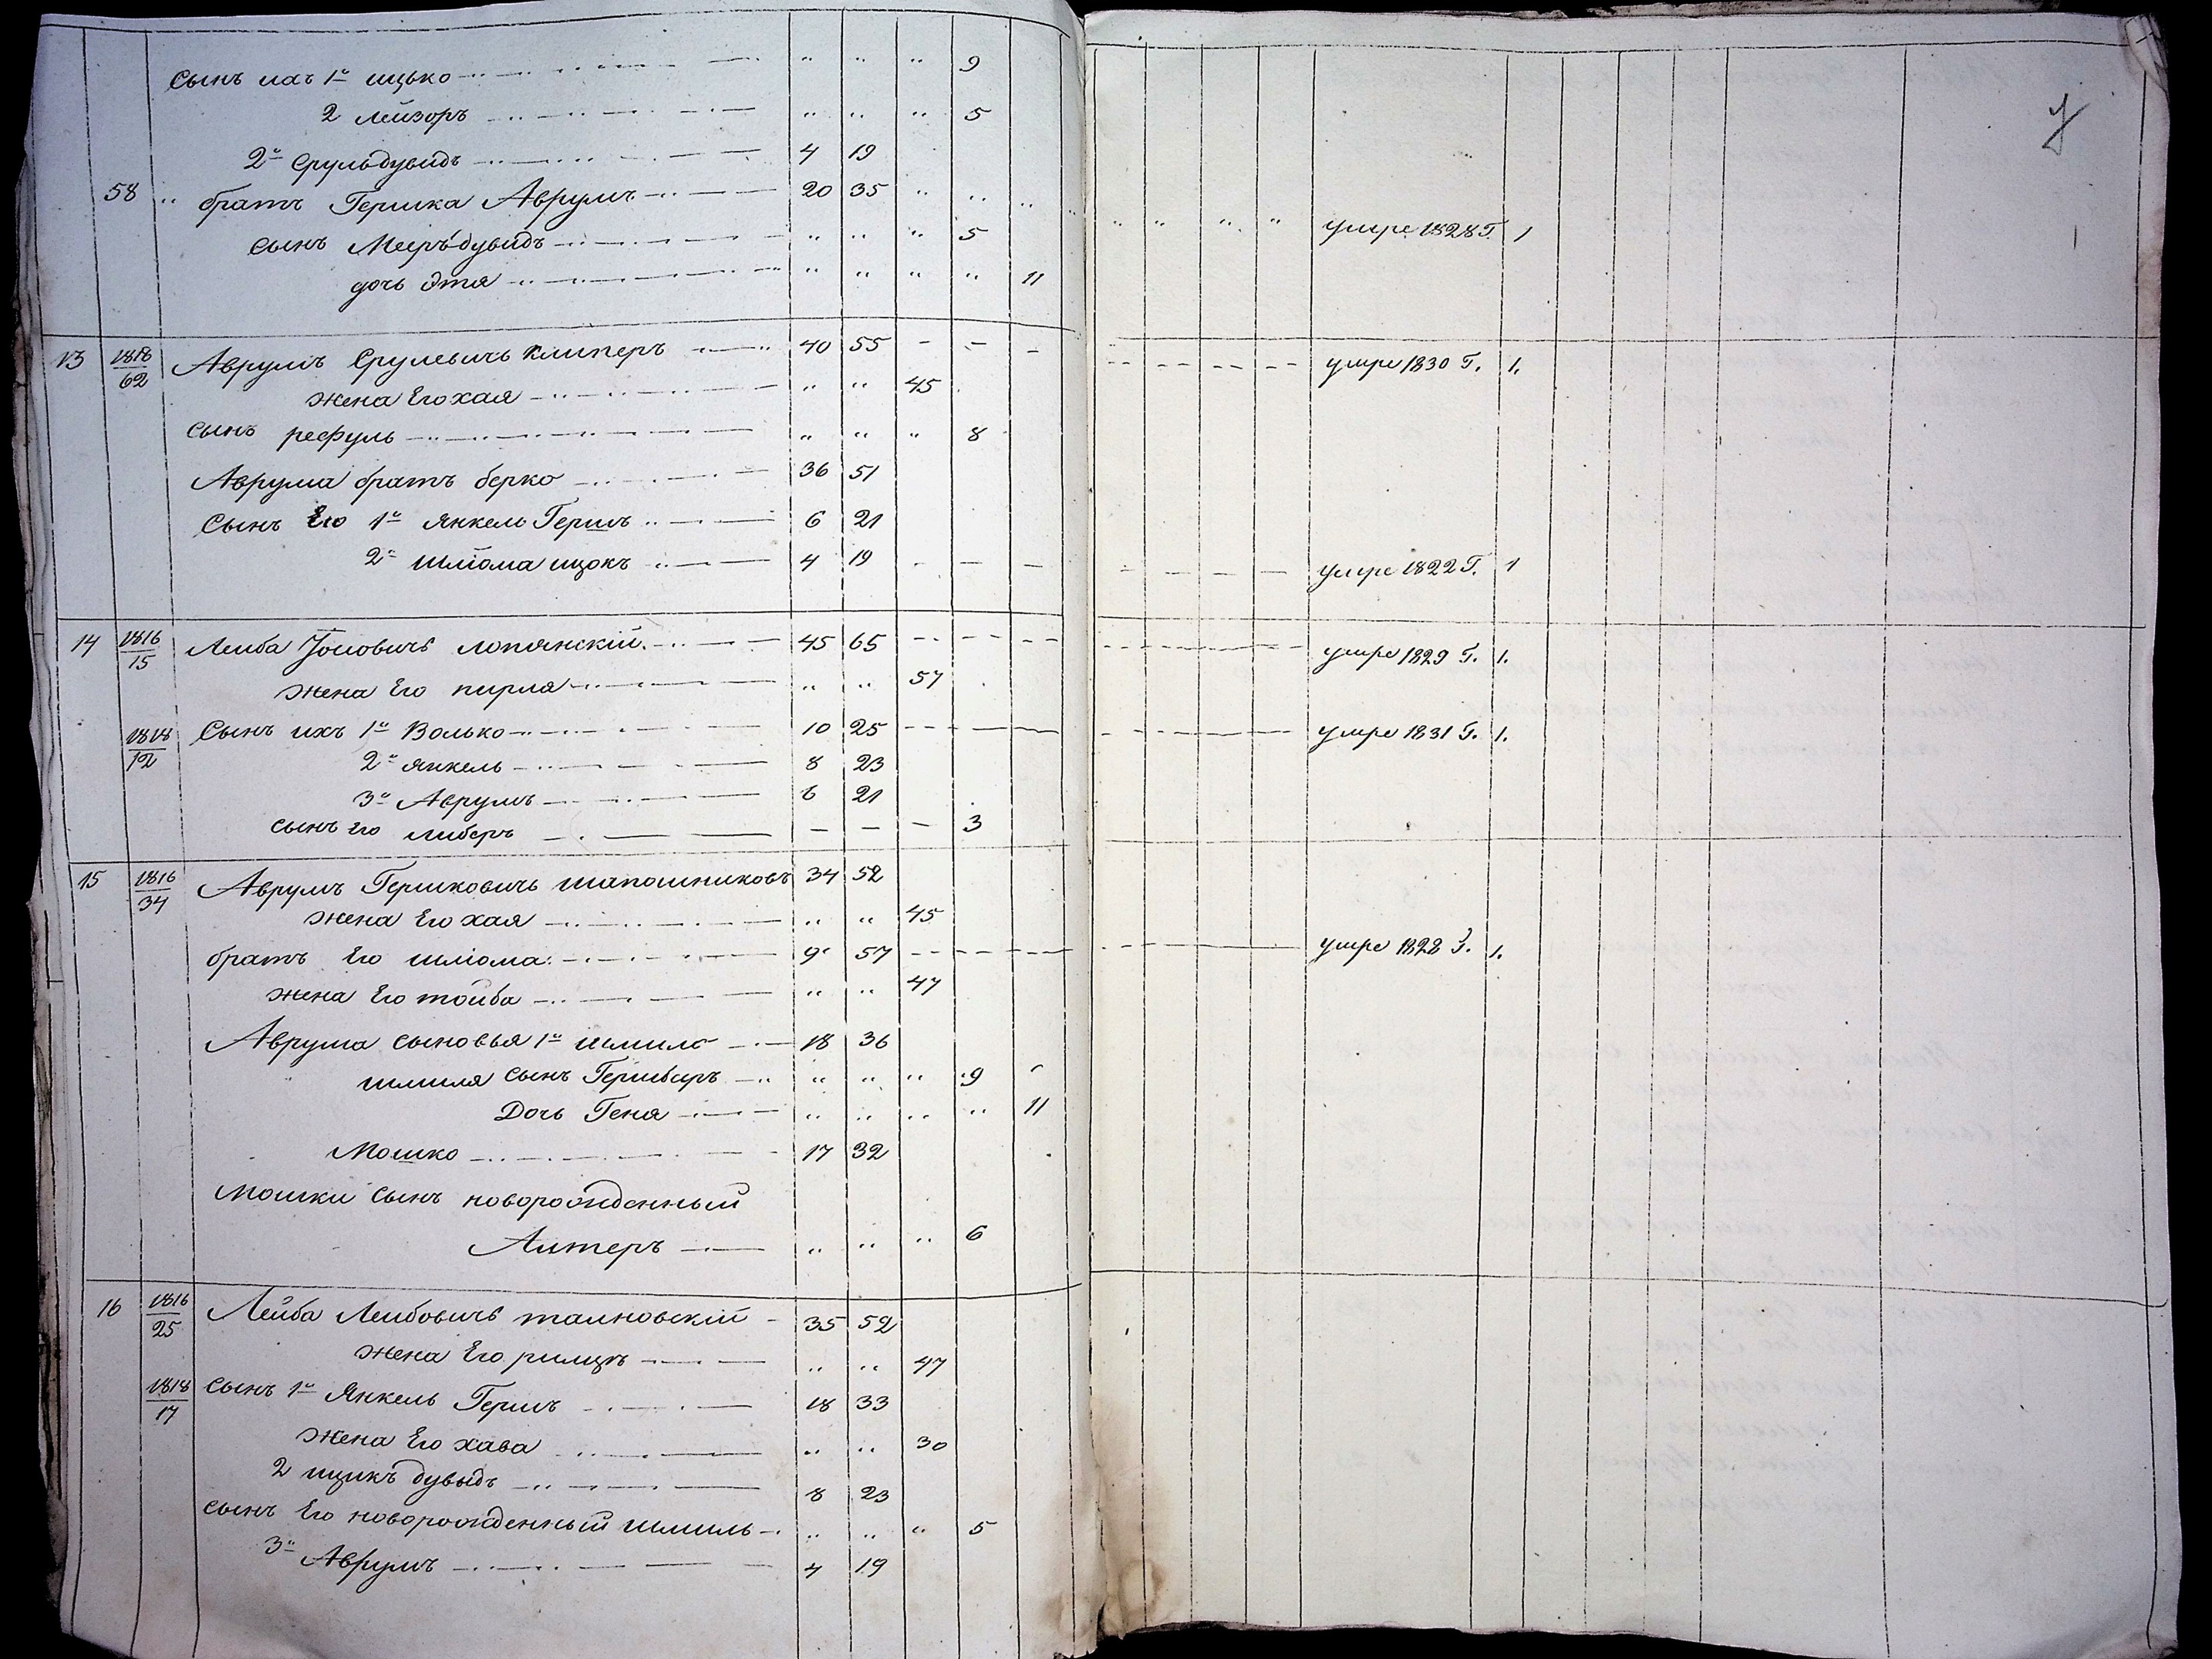 Сынъ ихъ 1й ицько " " " 9
2 лейзоръ " " " 5
2й Срульдувидъ 4 19
58 " братъ Гершка Аврумъ 20 35 " " " " " " " " умре 1828 Г. 1
сынъ Меиръ дувидъ " " " 5
дочь Этя " " " " 11
13 1818/62 Аврумъ Срулевичъ Клиперъ 40 55 - - - умре 1830 Г. 1.
жена Его хая " " 45
сынъ рефуль " " " 8
Аврума братъ берко 36 51
Сынъ Его 1й Янкель Гершъ 6 21
2й шлiома ицокъ 4 19 - - - умре 1822 Г. 1
14 1816/15 Леиба Іосиовичъ лопянскiй 45 65 умре 1829 Г. 1.
жена Его пирля " " 57
1818/12 Сынъ ихъ 1й Волько 10 25 умре 1831 Г. 1.
2й янкель 8 23
3й Аврумъ 6 21
сынъ его либеръ - - - 3
15 1816/34 Аврумъ Гершковичъ шапошниковъ 34 52
жена Его хая " " 45
братъ Его шлiома 9 57 умре 1828 Г. 1.
жена Его тойба " " 47
Аврума сыновья 1й шмило 18 36
шмиля сынъ Гершберъ " " " 9
Дочь Геня " " " " 11
Мошко 17 32
Мошки Сынъ новорожденный
Алтеръ " " " 6
16 1816/25 Лейба Леибовичъ талновскiй 35 52
жена Его " " 47
1818/17 Сынъ 1й Янкель Гершъ 18 33
жена Его хава " " 30
2 ицикъ дувыдъ 8 23
сынъ Его новорожденный шмиль " " " 5
3й Аврумъ 4 19